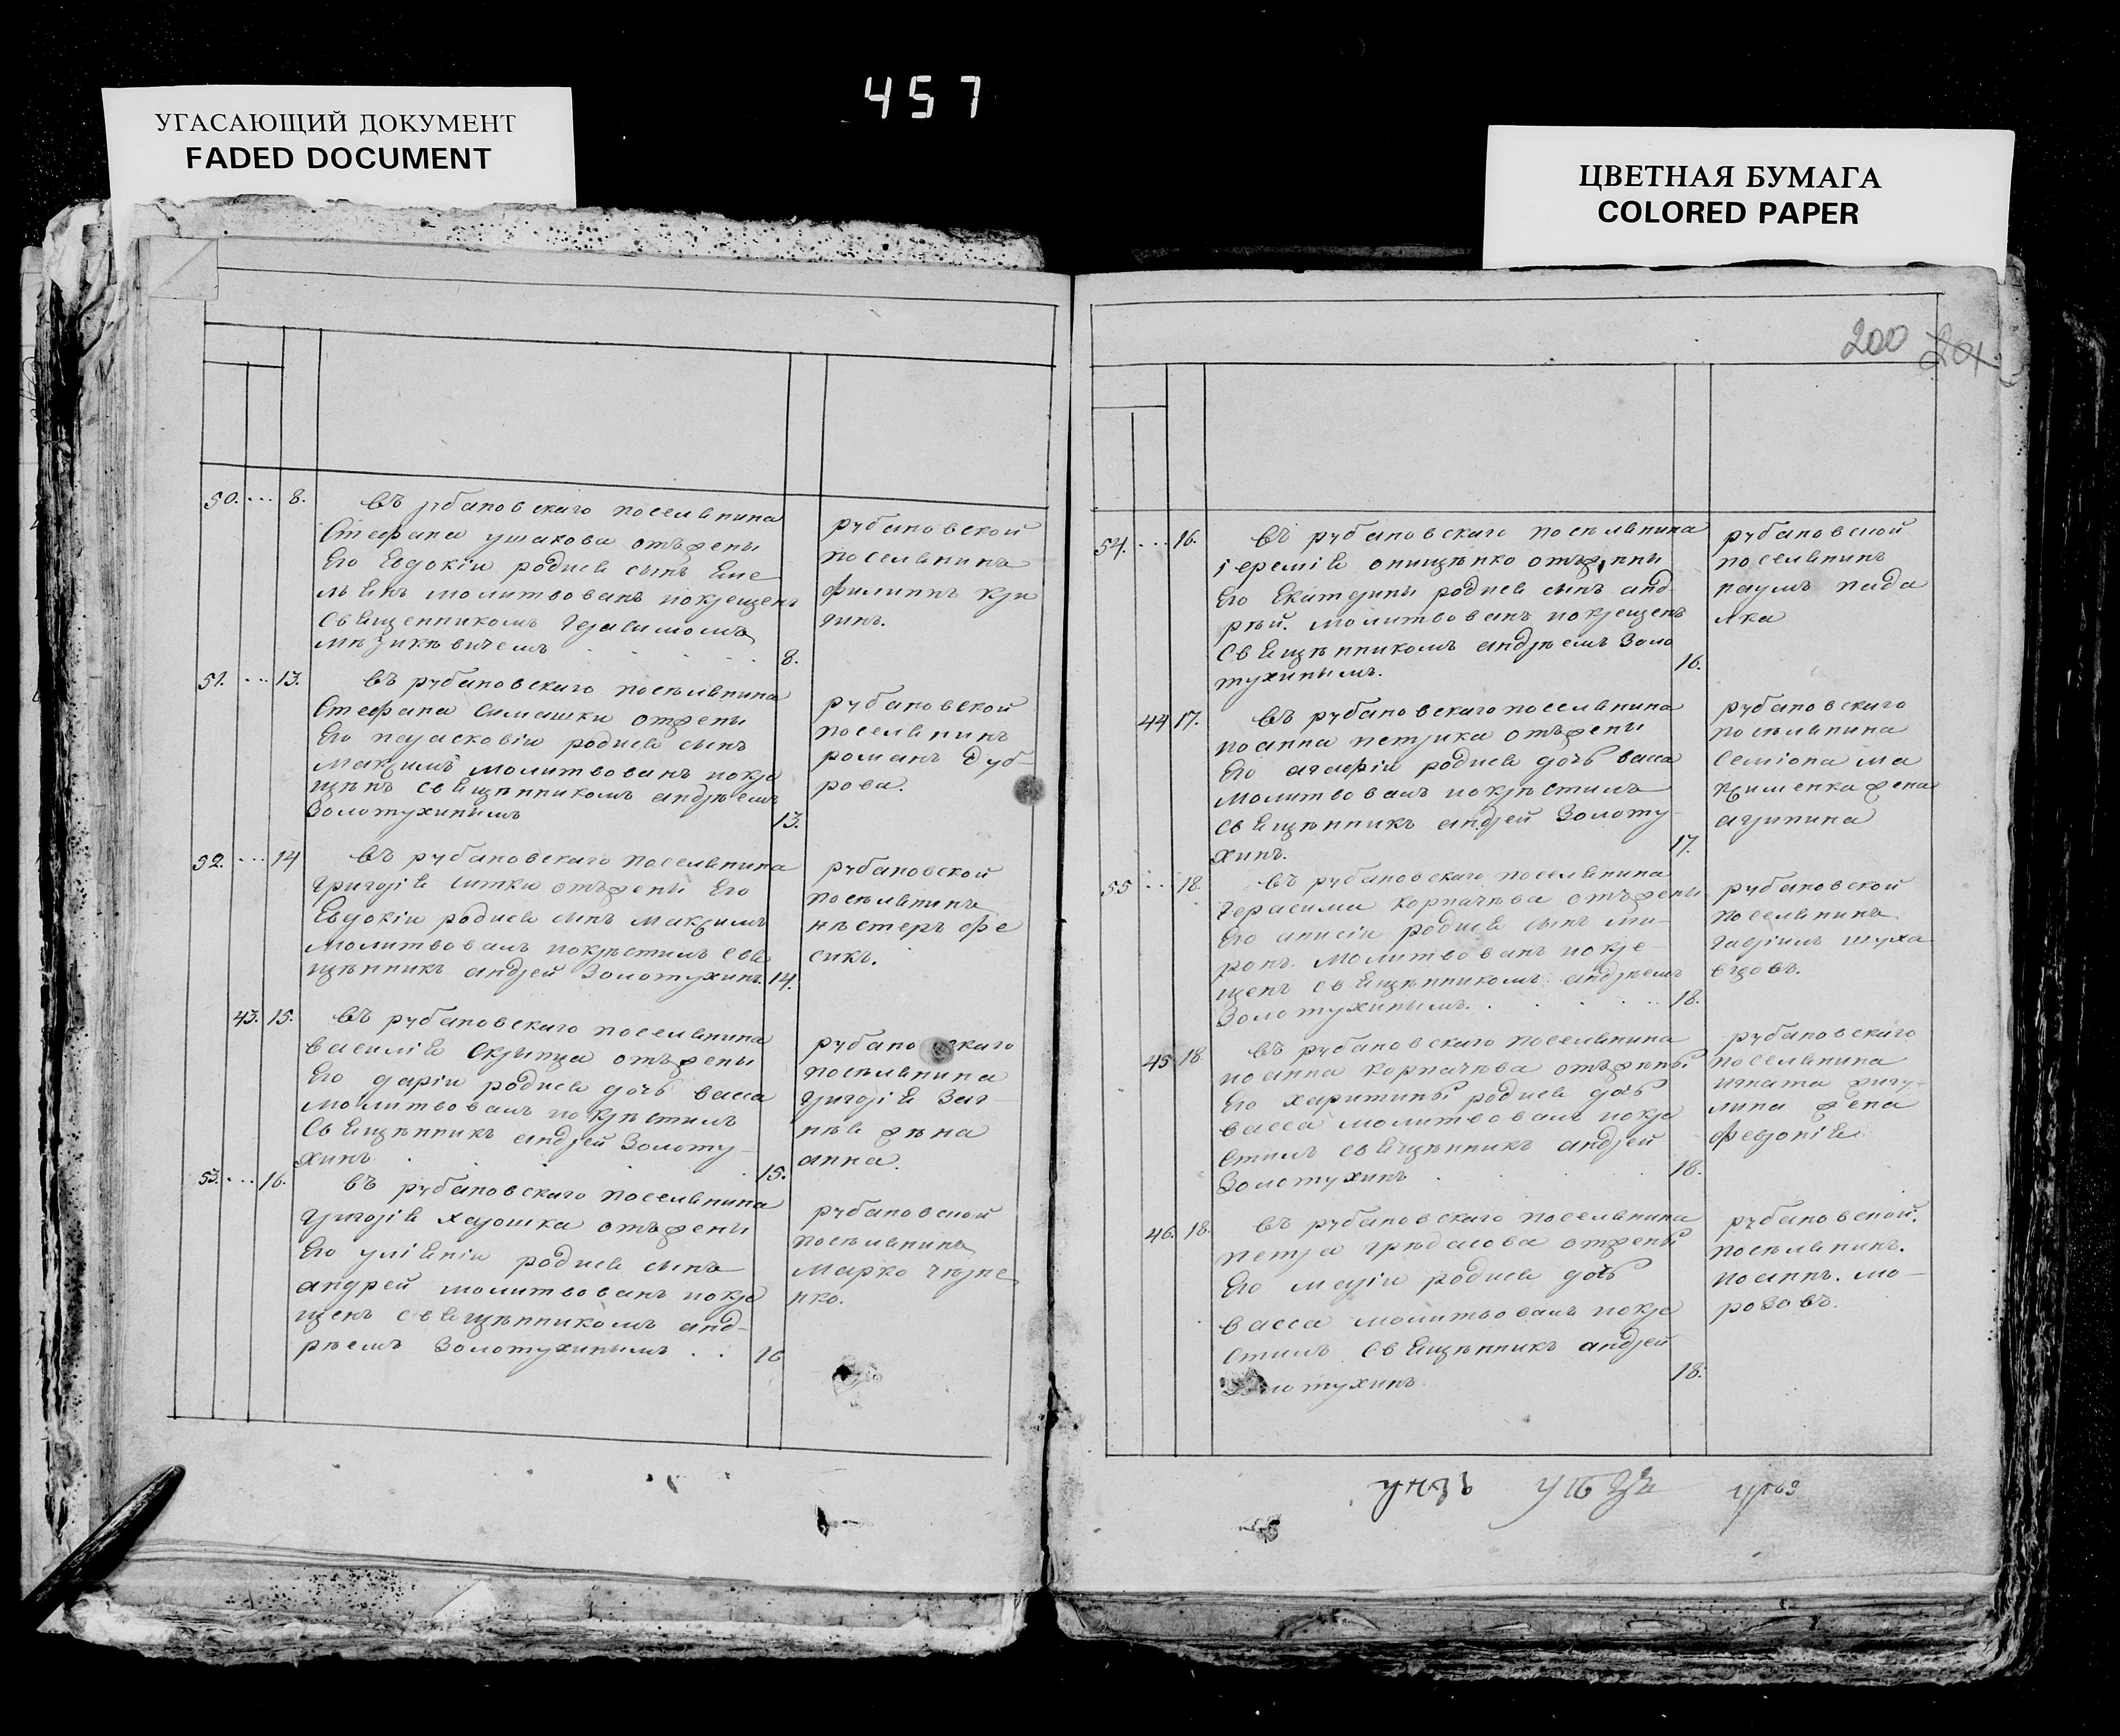 457
УГАСАЮЩИЙ ДОКУМЕНТ
FADED DOCUMENT
ЦВЕТНАЯ БУМАГА
COLORED PAPER
50. ... 8. въ рубановскаго поселянина
Стефана ушакова отъ жены
Его Евдокіи родися сынъ Еме
льянъ молитвованъ покрещенъ
Священникомъ Герасимомъ
8.
рубановской
поселянинъ
филиппъ
51. ... 13. въ рубановскаго поселянина
Стефана Симашки отжены
Его парасковіи родися сынъ
Максимъ молитвованъ покре
щѣнъ священникомъ андрѣемъ
Золотухинымъ 13.
рубановской
поселянинъ
романъ дуб-
рова.
52. ... 14 въ рубановскаго поселянина
григорія Ситки отъжены Его
Евдокіи родися сынъ Максимъ
молитвовалъ покрѣстилъ свя
щѣнникъ андрей Золотухинъ. 14.
рубановской
посѣлянинъ
нѣстеръ фе
сикъ.
43. 15. въ рубановскаго поселянина
василія Скрыпца отъжены
Его дарiи родися дочь васса
молитвовалъ покрѣстилъ
Священникъ андрей Золоту-
хинъ 15.
рубановскаго
посѣлянина
григорія
жѣна
анна.
53. ... 16. въ рубановскаго поселянина
григорія хорошка отъжены
Его уліянiи родися сынъ
андрей молитвованъ покре
щенъ священникомъ анд-
рѣемъ Золотухинымъ . . 16
рубановской
посѣлянинъ
Марко
нко.
200 201
54. ... 16. въ рубановскаго посѣлянина
іереміи онищѣнко отъжены
Его Екатерины родися сынъ анд-
рѣй. молитвованъ покрещенъ
Священникомъ андрѣемъ Золо
тухинымъ. 16.
рубановской
поселянинъ
наумъ пада
лка
44 17. въ рубановскаго поселянина
иоанна петрика отъжены
Его агафіи родися дочь васса
молитвовалъ покрѣстилъ
священникъ андрей Золоту-
хинъ. 17.
рубановскаго
посѣлянина
Семіона ма
ксименка жена
агрипина
55 .. 18. въ рубановскаго поселянина
герасима корпачѣва отъжены
Его анисіи родися сынъ ми-
ронъ. молитвованъ покре-
щенъ священникомъ андрѣемъ
Золотухинымъ. 18.
рубановской
поселянинъ
45 18. въ рубановскаго поселянина
иоанна корпачѣва отъжены
Его харитины родися дочь
васса молитвовалъ покре
стилъ священникъ андрей
Золотухинъ 18.
рубановскаго
поселянина
игната жигу-
лина жена
февронія
46. 18. въ рубановскаго поселянина
петра отжены
Его марiи родися дочь
васса молитвовалъ покре
стилъ священникъ андрей
Золотухинъ 18.
рубановской.
посѣлянинъ.
иоаннъ. мо-
розовъ.